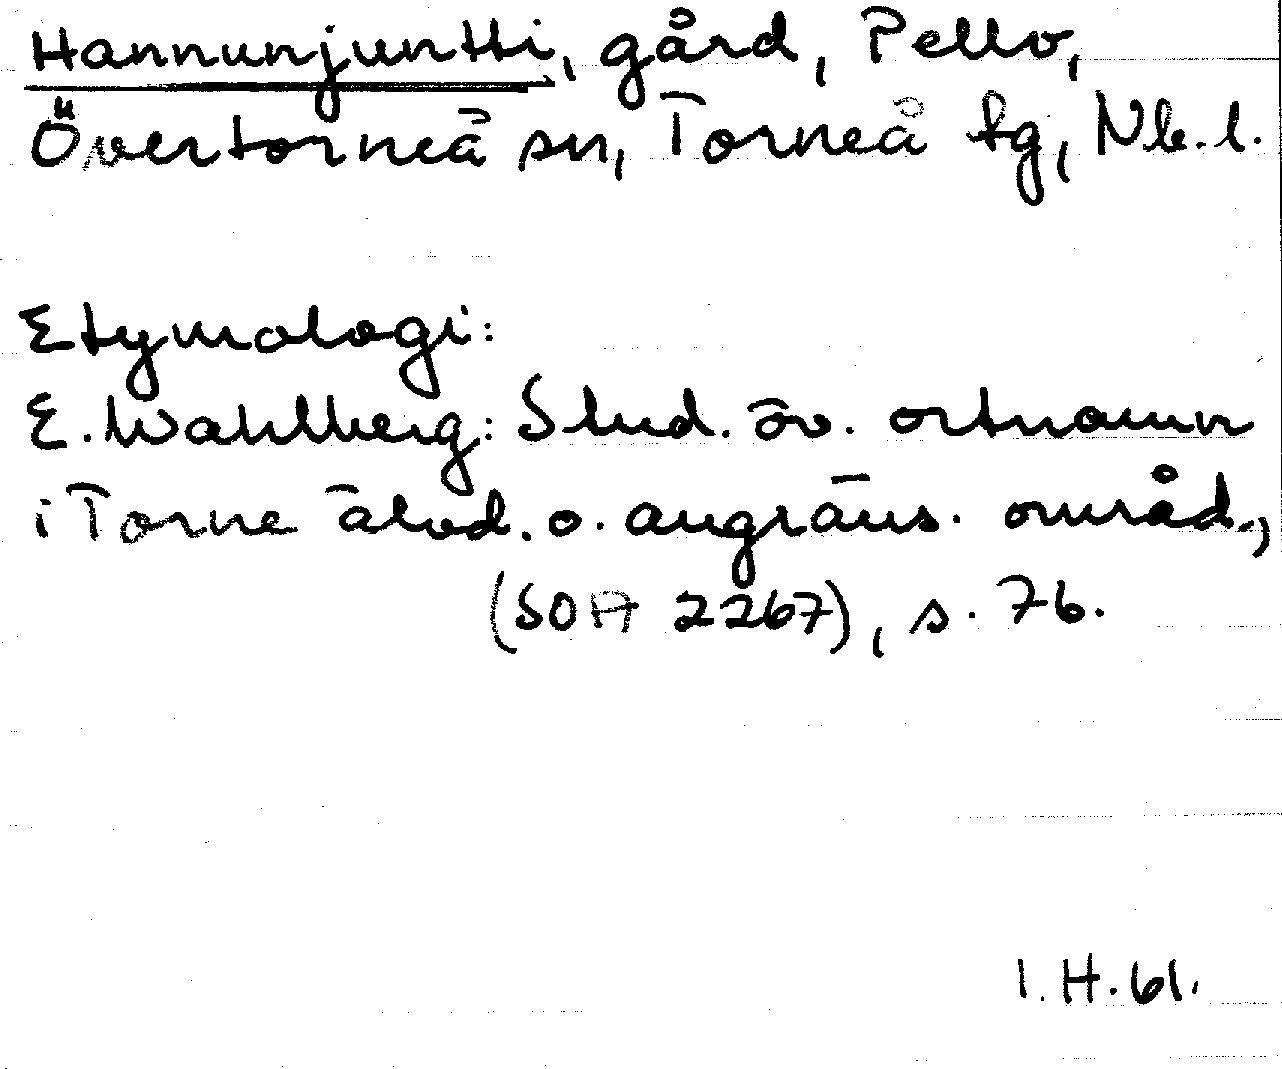 Hannunjuntti, gård, Pello,
Övertorneå sn, Torneå tg, Nb.l.
Etymologi:
E. Wahlberg: Stud. öv. ortnamn
i Torne älvd. o. angräns. områd.,
(SOA 2267), s. 76.
I.H.61.